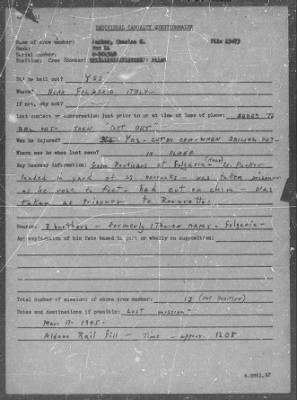 INDIVIDUAL CASUALTY QUESTIONNAIRE
Name of crew member: Parker, Charles E. File 13673
Rank: 1st Lt
Serial number:
Position: Crew Pilot
Did he bail out? YES
Where? NEAR FOLGARIA, ITALY
If not, why not?
Last contact or conversation just prior to or at time of loss of plane: ORDER TO
BAIL OUT - THEN GOT OUT
Was he injured? YES - CUT ON CHIN - WHEN BAILING OUT -
Where was he when last seen? IN PLANE
Any hearsay information: From Partisans at Folgaria - Lt. Parker
landed in yard of SS - was taken prisoner
as he rose to feet - had cut on chin - was
taken as prisoner to
Source: 2 brothers - formerly Italian navy - Folgaria -
Any explanation of his fate based in part or wholly on supposition:
Total number of missions of above crew member: (not position)
Dates and destinations if possible: Last mission -
Mar. 1945 -
Aldeno Rail Fill - Time - approx. 1205